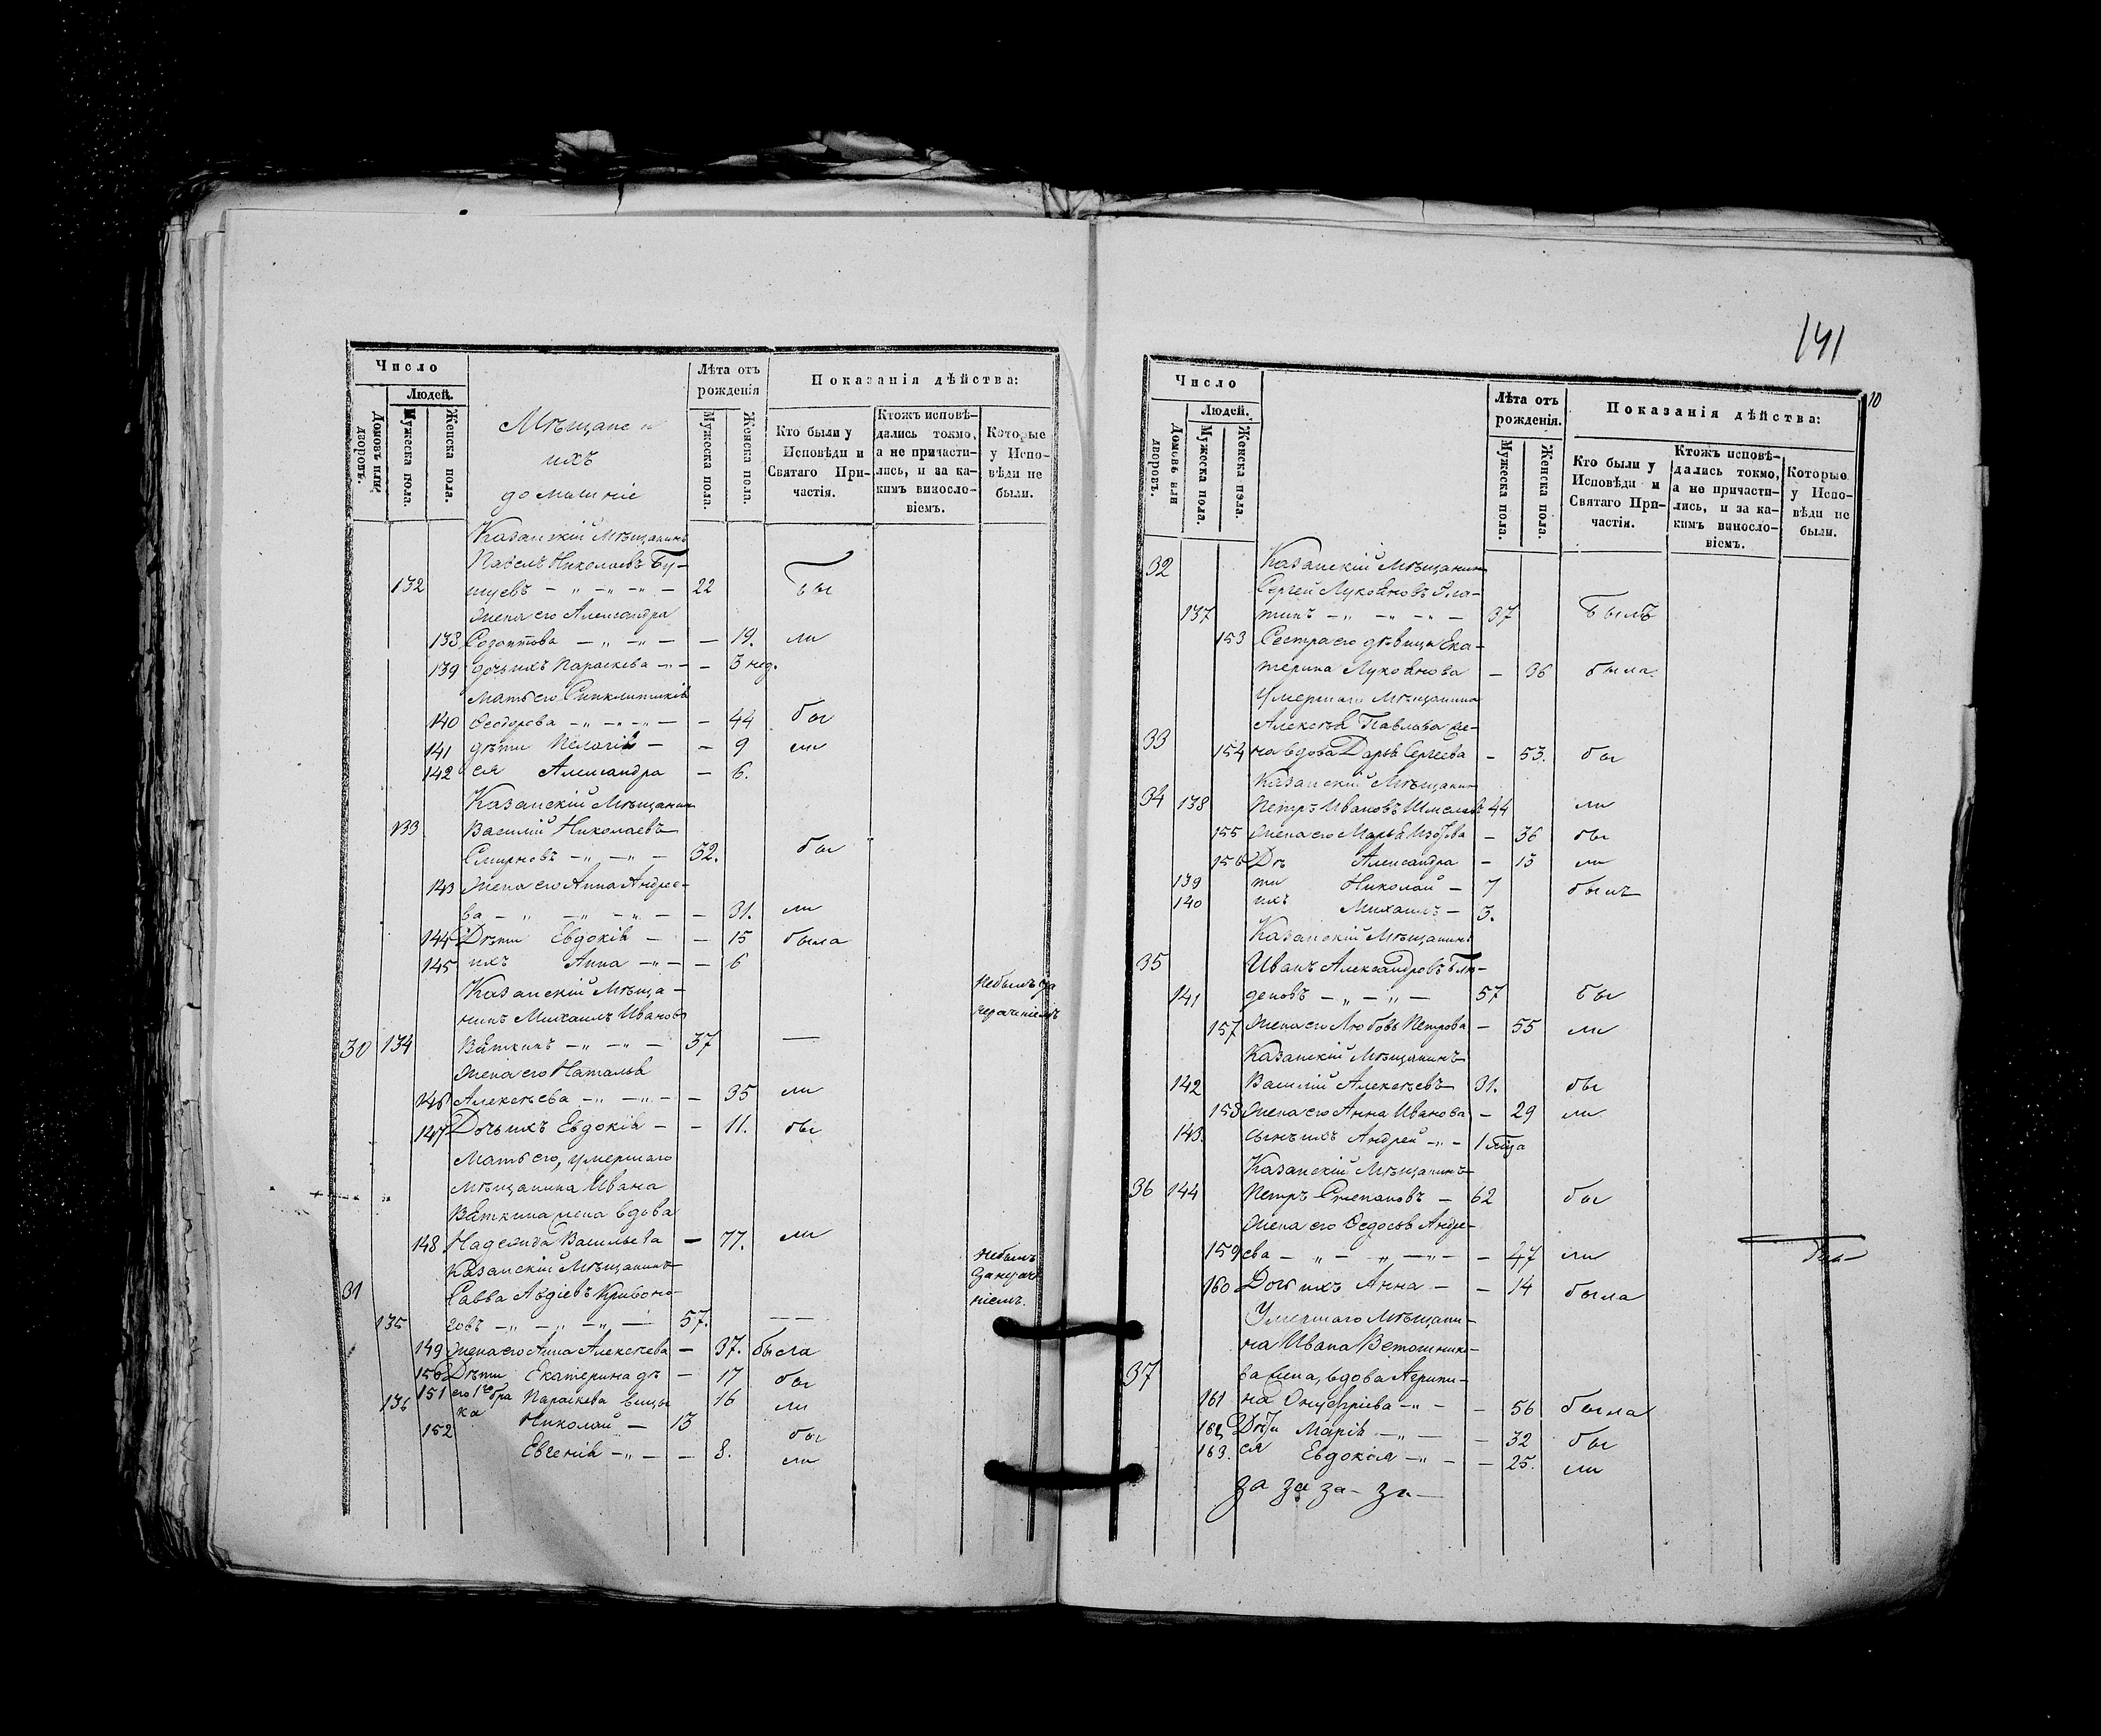 Число
Людей.
Домовъ или дворовъ.
Мужеска пола.
Женска пола.
Мѣщане и
ихъ
домашніе
Лѣта отъ
рожденія
Мужеска пола.
Женска пола.
Показанія дѣйства:
Кто были у
Исповѣди и
Святаго При-
частія.
Ктожъ исповѣ-
дались токмо,
а не причасти-
лись, и за ка-
кимъ винosло-
віемъ.
Которые
у Испо-
вѣди не
были.
Казанскій Мѣщанинъ
Павелъ Николаевъ Бу-
132 шуевъ - „ - „ - „ - 22 бы
жена его Александра
138 Созонтова - „ - „ - - 19. ли
139 дочь ихъ Параскева - „ - - 3 нед.
мать его Синклитикія
140 Ѳеодорова - „ - „ - „ - - 44 бы
141 дѣти Пелагія - - 9 ли
142 ея Александра - 6.
Казанскій Мѣщанинъ
133 Василій Николаевъ
Смирновъ - „ - „ - 32. бы
143 жена его Анна Андрее-
ва - „ - „ - „ - - 31. ли
144 Дѣти Евдокія - - 15 была
145 ихъ Анна - „ - - 6
Казанскій Мѣща- небылъ за
нинъ Михаилъ Ивановъ нерачіемъ
30 134 Вяткинъ - „ - „ - 37 —
жена его Наталья
146 Алексѣева - „ - „ - - 35 ли
147 Дочь ихъ Евдокія - - 11. бы
Мать его, умершаго
мѣщанина Ивана
Вяткина жена вдова
148 Надежда Васильева - 77. ли
Казанскій Мѣщанинъ небылъ
31 Савва Авдіевъ Кривоно-
135 говъ - „ - „ - „ - 57. — —
149 жена его Анна Алексѣева - 37. была
150 Дѣти Екатерина дѣ- - 17 бы
151 его 1го бра Параскева вицы 16 ли
136 ка Николай - 13 бы
152 Евгенія - „ - - 8. ли
141
10
Число
Людей.
Домовъ или дворовъ.
Мужеска пола.
Женска пола.
Лѣта отъ
рожденія.
Мужеска пола.
Женска пола.
Показанія дѣйства:
Кто были у
Исповѣди и
Святаго При-
частія.
Ктожъ исповѣ-
дались токмо,
а не причасти-
лись, и за ка-
кимъ винosло-
віемъ.
Которые
у Испо-
вѣди не
были.
32 Казанскій Мѣщанинъ
Сергей Лукояновъ
137 - „ - „ - „ - 37 былъ
153 Сестра его дѣвица Ека-
терина Лукоянова - 36 была.
Умершаго Мѣщанина
33 Алексѣя Павлова же-
154 на вдова Дарья Сергѣева - 53. бы
Казанскій Мѣщанинъ
34 138 Петръ Ивановъ 44 ли
155 жена его Марья - 36 бы
156 Дѣ Александра - 13 ли
139 ти Николай - 7 былъ
140 ихъ Михаилъ - 3.
Казанскій Мѣщанинъ
35 Иванъ Александровъ Блю-
141 деновъ - „ - „ - 57 бы
157 жена его Любовь Петрова - 55 ли
Казанскій Мѣщанинъ
142 Василій Алексѣевъ 31. бы
158 жена его Анна Иванова - 29 ли
143. сынъ ихъ Андрей - „ - 1
Казанскій Мѣщанинъ
36 144 Петръ Степановъ - 62 бы
жена его Ѳедосья Андре-
159 ева - „ - „ - „ - - 47 ли
160 Дочь ихъ Анна - - 14 была
Умершаго Мѣщани-
на Ивана Ветошнико-
37 ва жена, вдова Агрипи-
161 на Онуфріева - „ - - 56 была
162 Дѣти Марія - „ - - 32 бы
163. ея Евдокія - „ - - 25. ли
за за за - за -